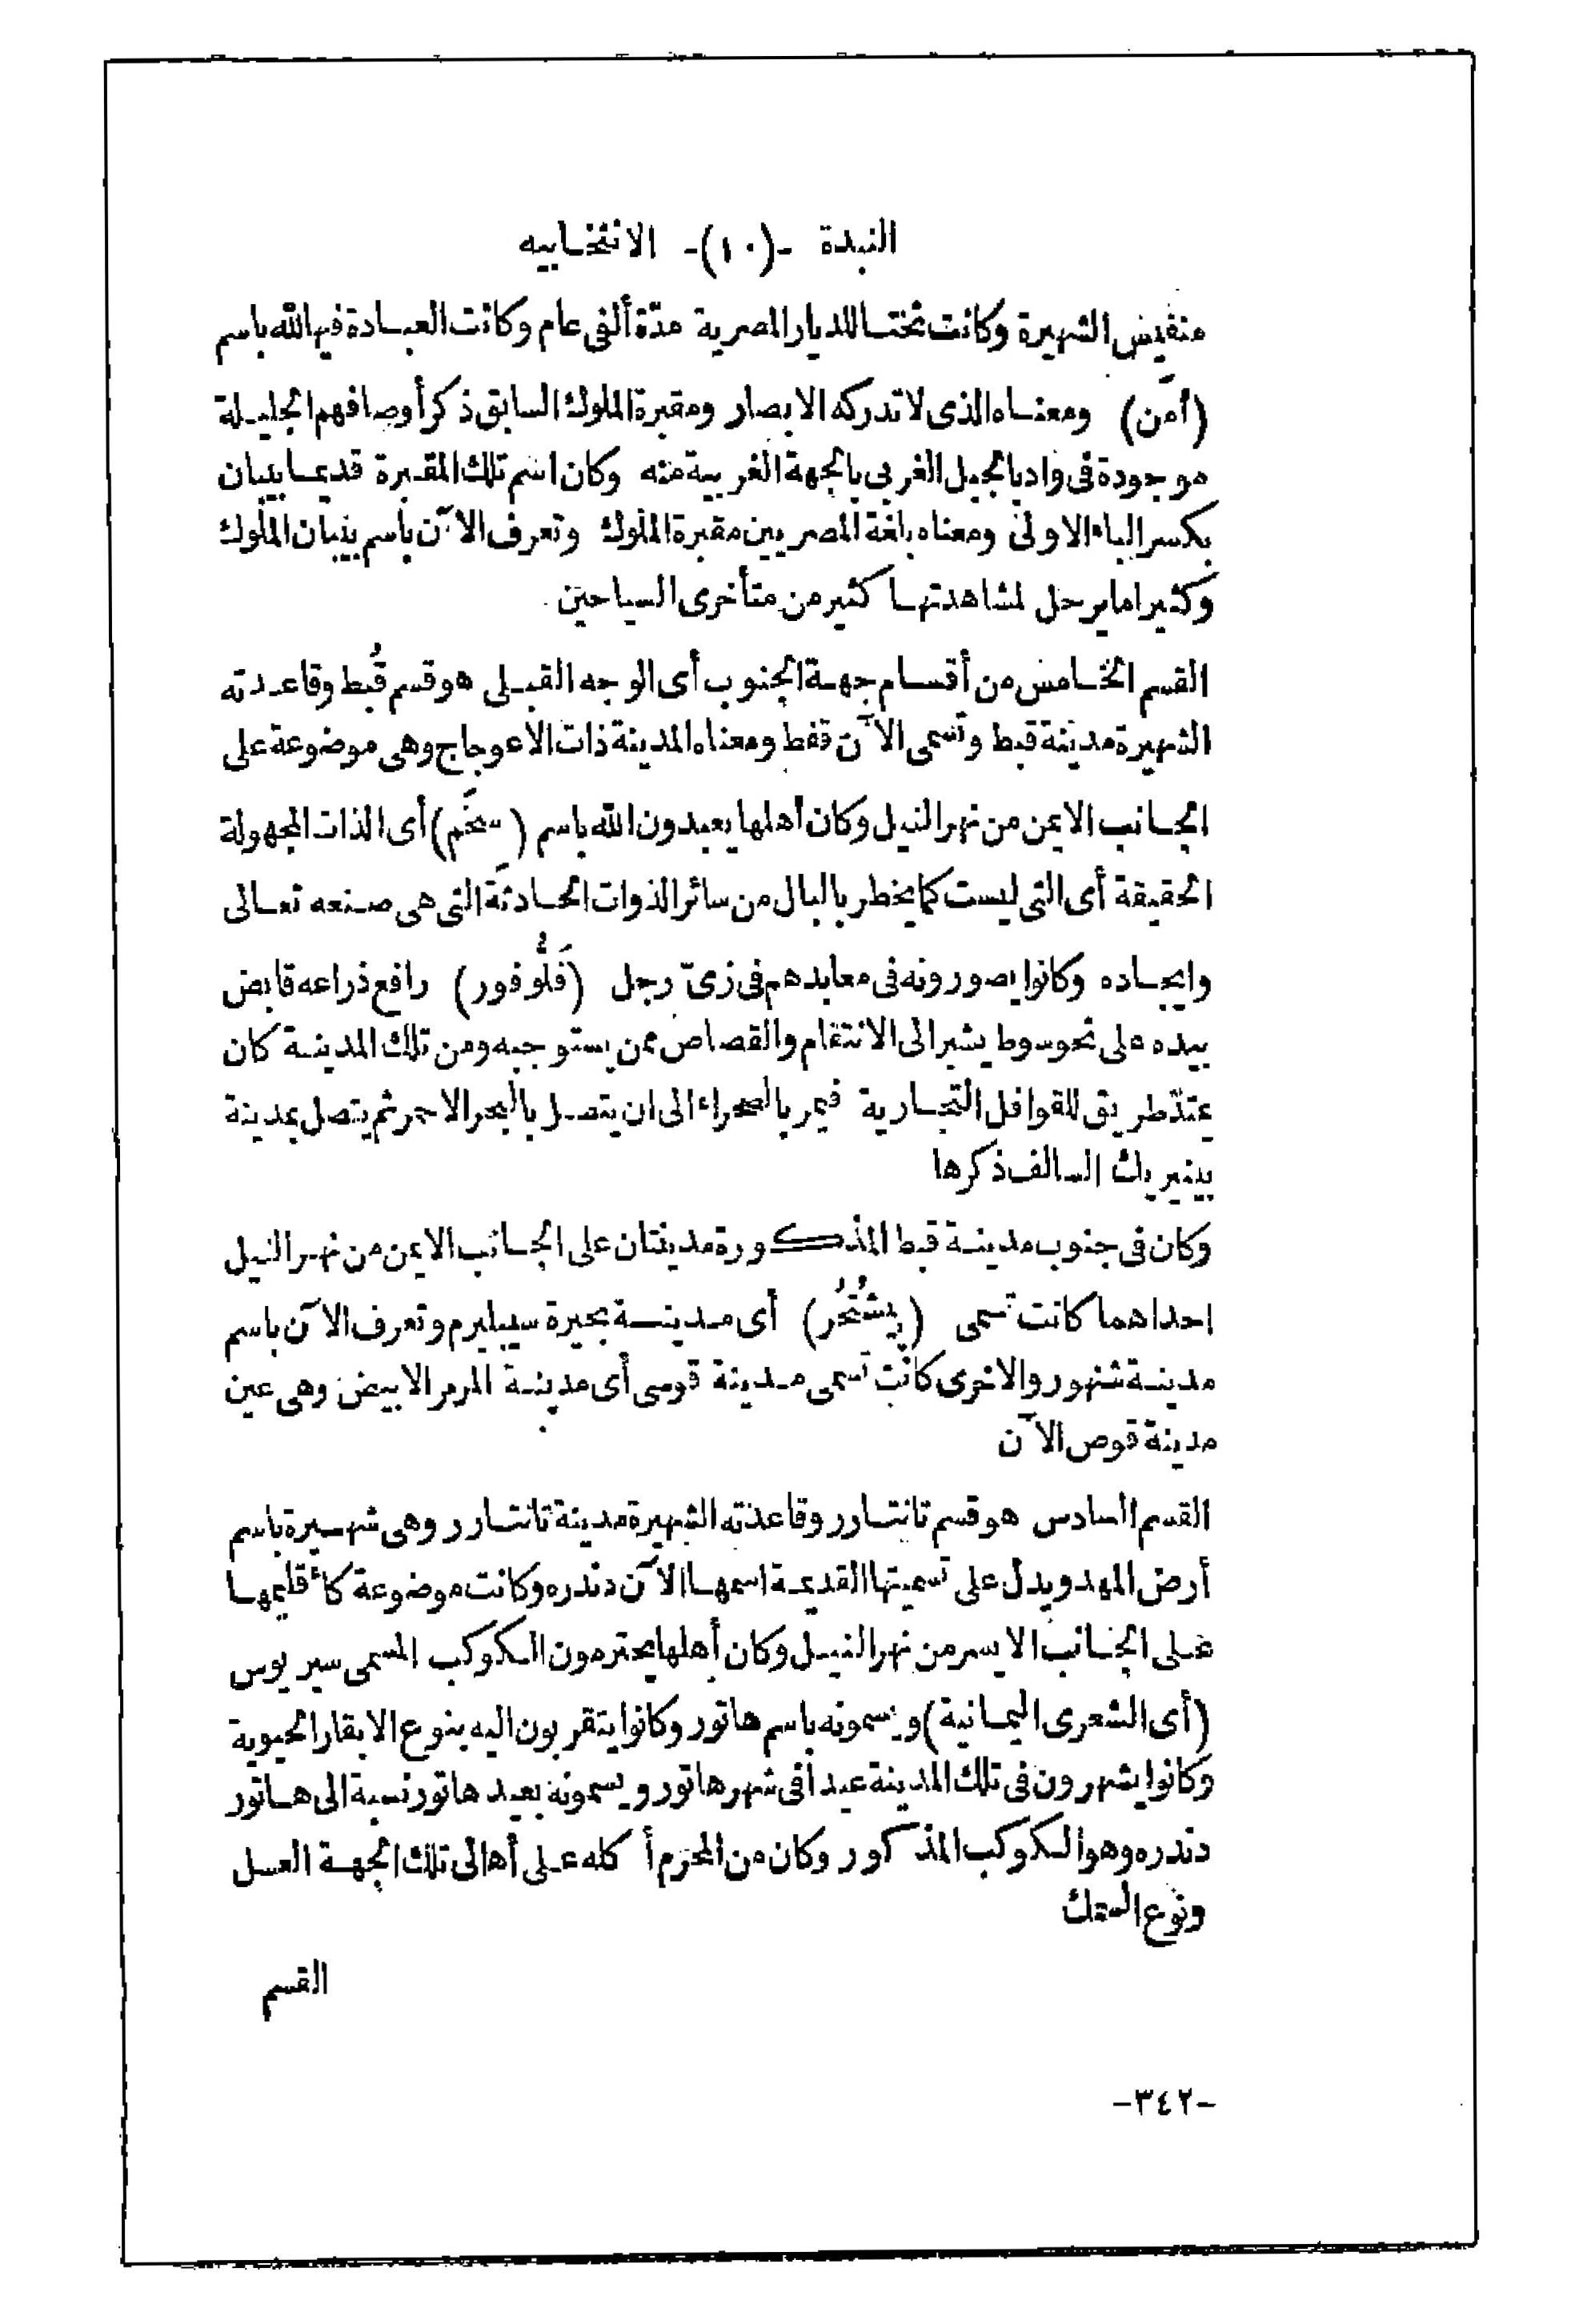 النبذة -(١٠)- الانتخابيه
منفيس الشهيرة وكانت تختا للديار المصرية مدّة ألفى عام وكانت العبادة فيها لله باسم
(أمن) ومعناه الذى لاتدركه الابصار ومقبرة الملوك السابق ذكر أوصافهم الجليلة
موجودة فى وادبالجبل الغربى بالجهة الغربية منه وكان اسم تلك المقبرة قديما بيبان
بكسر الباء الاولى ومعناه بلغة المصريين مقبرة الملوك وتعرف الآن باسم بيبان الملوك
وكثيرا مايرحل لمشاهدتها كثير من متأخرى السياحين
القسم الخامس من أقسام جهة الجنوب أى الوجه القبلى هو قسم قُبط وقاعدته
الشهيرة مدينة قبط وتسمى الآن قفط ومعناه المدينة ذات الاعوجاج وهى موضوعة على
الجانب الايمن من نهر النيل وكان أهلها يعبدون الله باسم (سخَم) أى الذات المجهولة
الحقيقة أى التى ليست كما يخطر بالبال من سائر الذوات الحادثة التى هى صنعه تعالى
وايجاده وكانوا يصورونه فى معابدهم فى زىّ رجل (فَلُّوفور) رافع ذراعه قابض
بيده على نحو سوط يشير الى الانتقام والقصاص ممن يستوجبه ومن تلك المدينة كان
يمتدّ طريق للقوافل التجارية فيمر بالصحراء الى ان يتصل بالبحر الاحمر ثم يتصل بمدينة
بينيريك السالف ذكرها
وكان فى جنوب مدينة قبط المذكورة مدينتان على الجانب الايمن من نهر النيل
احداهما كانت تسمى (پِشُنحُر) أى مدينة بحيرة سيبليرم وتعرف الآن باسم
مدينة شنهور والاخرى كانت تسمى مدينة قوسى أى مدينة المرمر الابيض وهى عين
مدينة قوص الآن
القسم السادس هو قسم تانتارر وقاعدته الشهيرة مدينة تانتارر وهى شهيرة باسم
أرض المهد ويدل على تسميتها القديمة اسمها الآن دندره وكانت موضوعة كأقليمها
على الجانب الايسر من نهر النيل وكان أهلها يحترمون الكوكب المسمى سيريوس
(أى الشعرى اليمانية) ويسمونه باسم هاتور وكانوا يتقربون اليه بنوع الابقار الحيوية
وكانوا يشهرون فى تلك المدينة عيدا فى شهر هاتور ويسمونه بعيد هاتور نسبة الى هاتور
دندره وهو الكوكب المذكور وكان من المحرم أكله على أهالى تلك الجهة العسل
ونوع السمك
القسم
-٣٤٢-